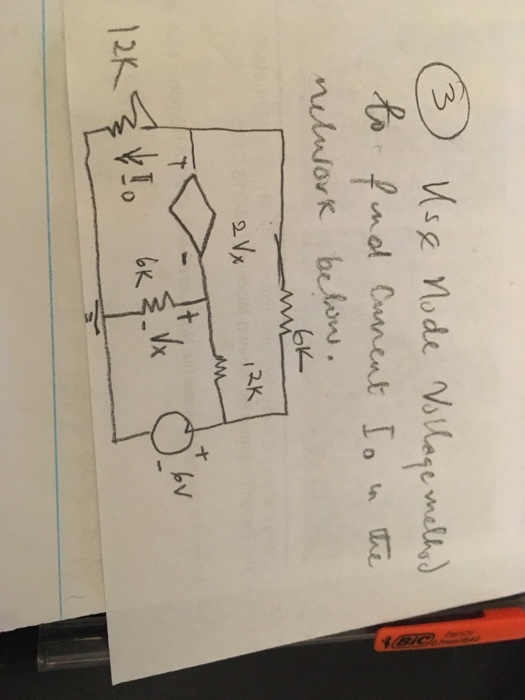 ③ Use Node Voltage method
to find Current Io in the
network below.
6K
2Vx
12K
+ -
12K
Io
6K
+
Vx
-
+
6V
-
BIC